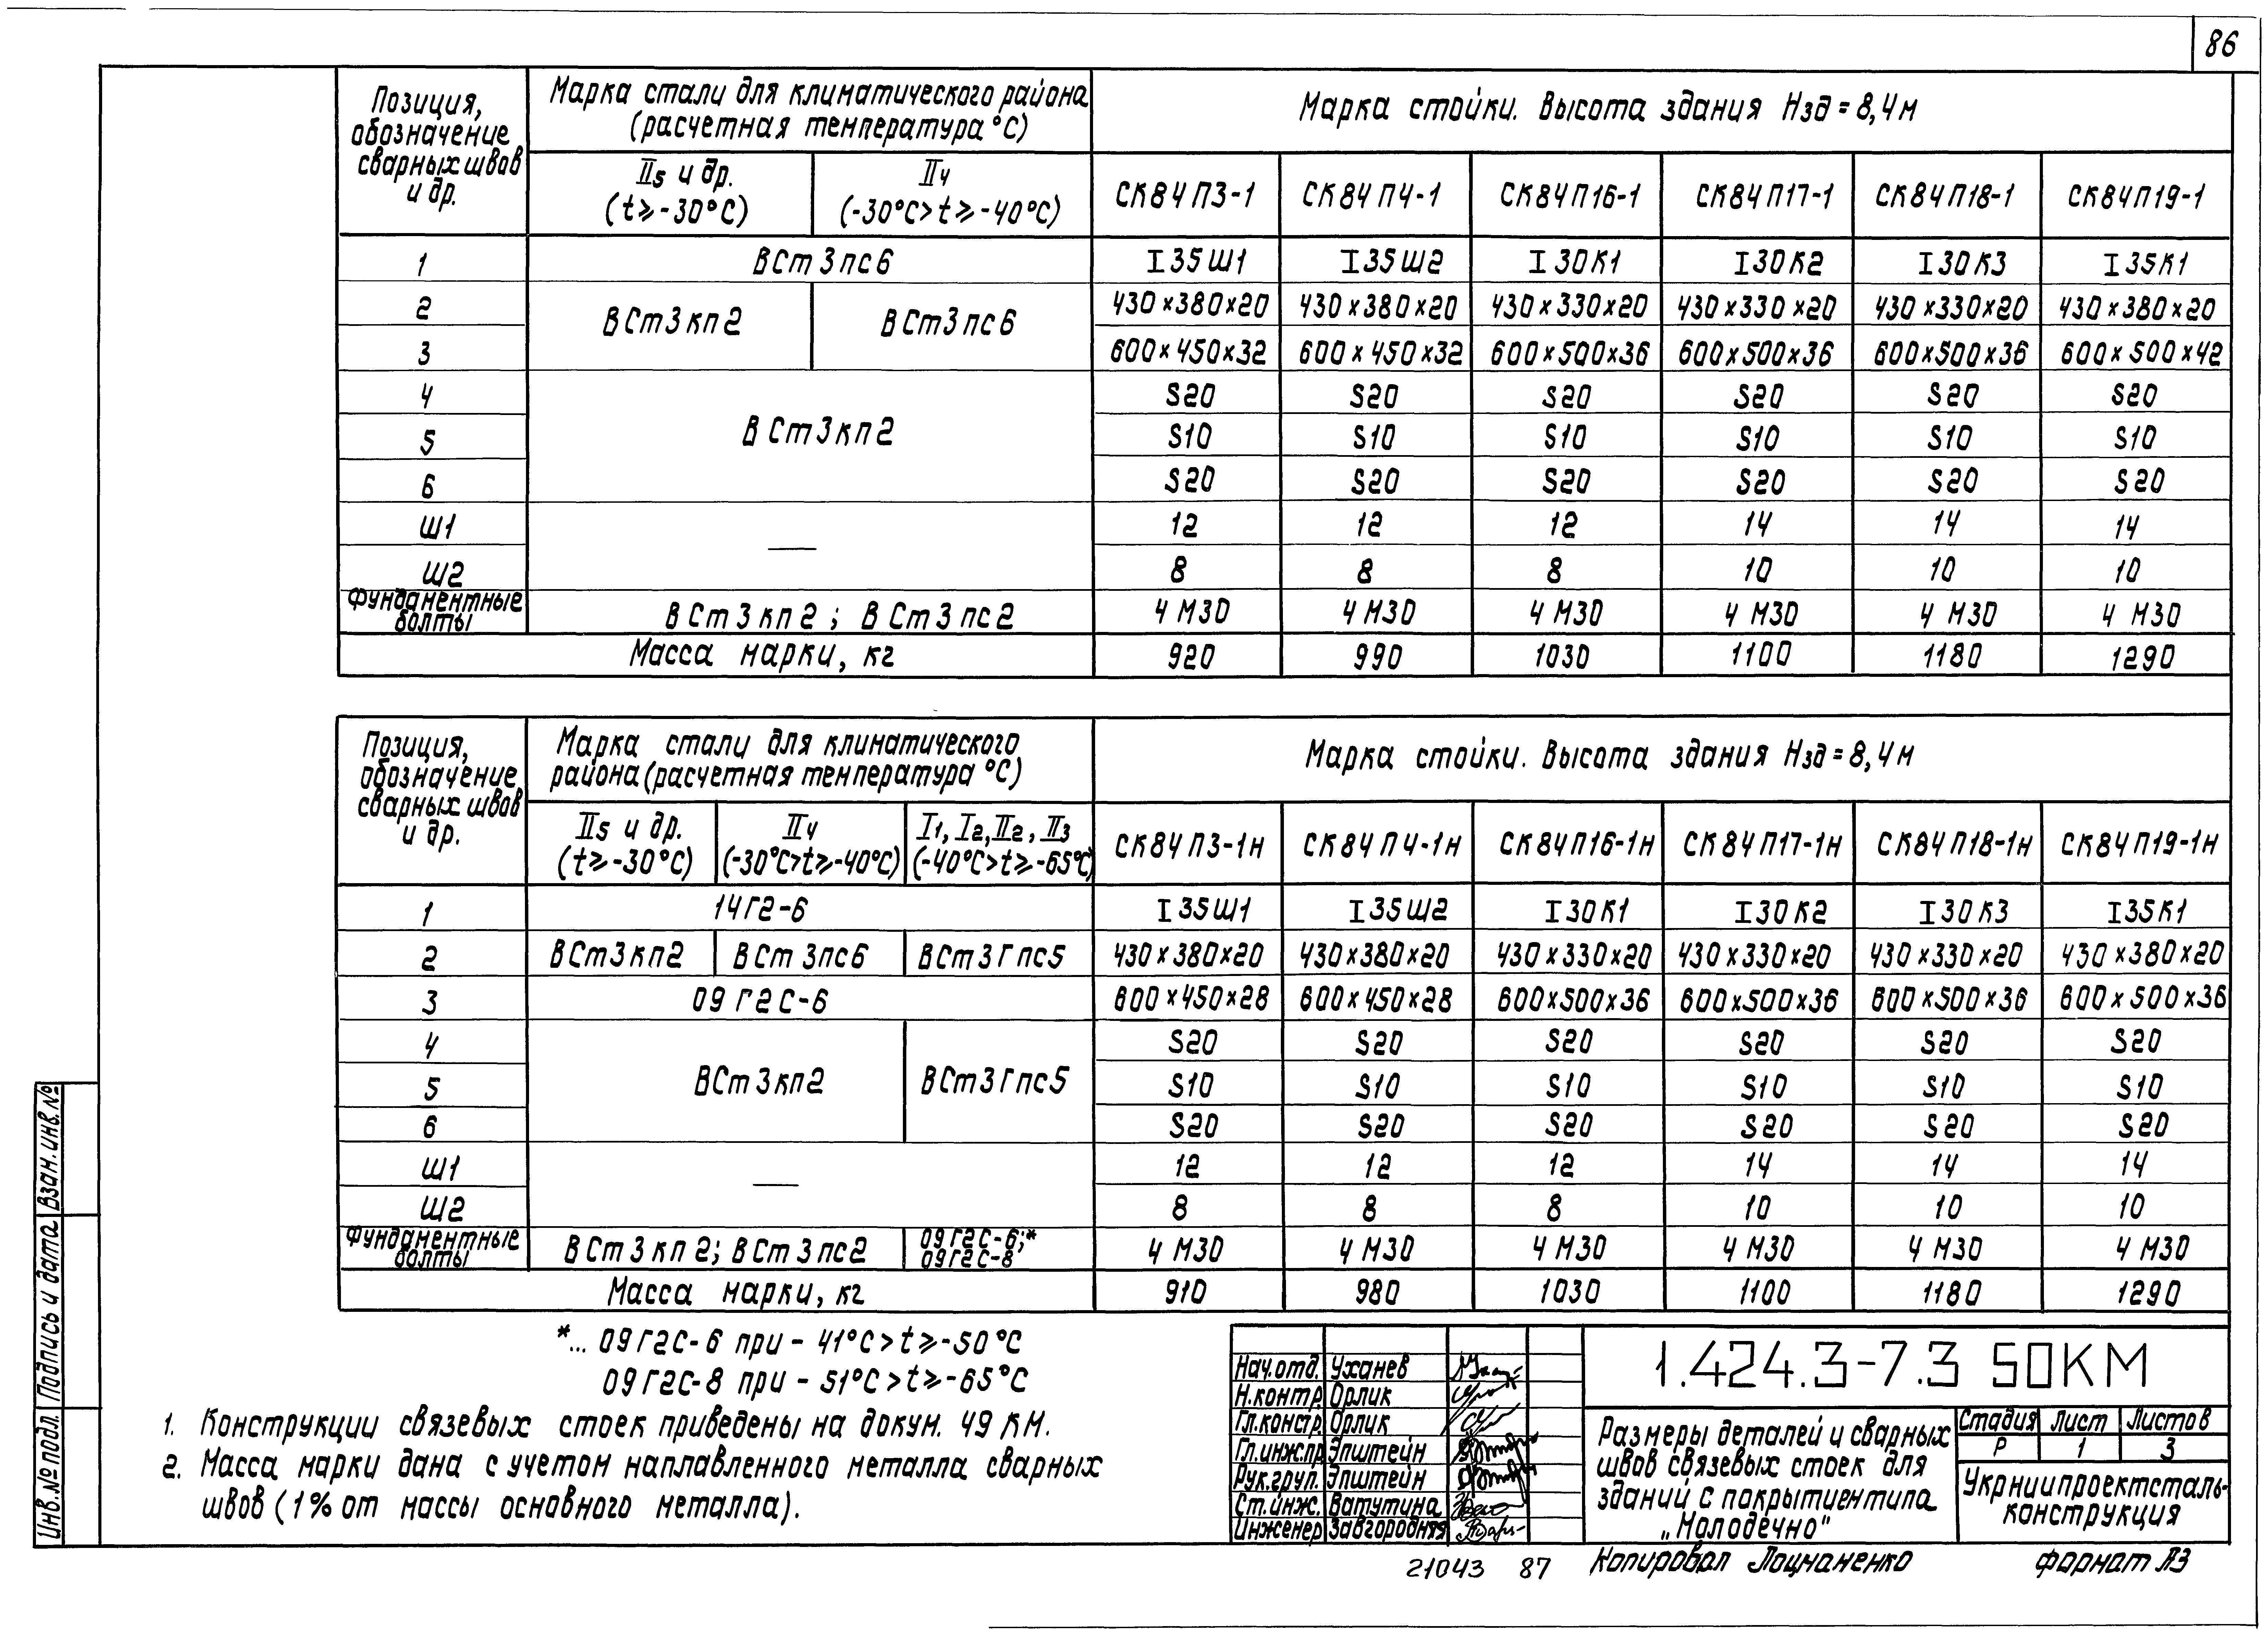 86
Позиция, обозначение сварных швов и др. | Марка стали для климатического района (расчетная температура °С) | Марка стойки. Высота здания Hзд = 8,4 м
II5 и др. (t≥-30°С) | II4 (-30°С>t≥-40°С) | СК84П3-1 | СК84П4-1 | СК84П16-1 | СК84П17-1 | СК84П18-1 | СК84П19-1
1 | ВСт3пс6 | I35Ш1 | I35Ш2 | I30К1 | I30К2 | I30К3 | I35К1
2 | ВСт3кп2 | ВСт3пс6 | 430×380×20 | 430×380×20 | 430×330×20 | 430×330×20 | 430×330×20 | 430×380×20
3 | 600×450×32 | 600×450×32 | 600×500×36 | 600×500×36 | 600×500×36 | 600×500×42
4 | S20 | S20 | S20 | S20 | S20 | S20
5 | ВСт3кп2 | S10 | S10 | S10 | S10 | S10 | S10
6 | S20 | S20 | S20 | S20 | S20 | S20
Ш1 | — | 12 | 12 | 12 | 14 | 14 | 14
Ш2 | 8 | 8 | 8 | 10 | 10 | 10
Фундаментные болты | ВСт3кп2; ВСт3пс2 | 4 М30 | 4 М30 | 4 М30 | 4 М30 | 4 М30 | 4 М30
Масса марки, кг | 920 | 990 | 1030 | 1100 | 1180 | 1290
Позиция, обозначение сварных швов и др. | Марка стали для климатического района (расчетная температура °С) | Марка стойки. Высота здания Hзд = 8,4 м
II5 и др. (t≥-30°С) | II4 (-30°С>t≥-40°С) | I1, I2, II2, II3 (-40°С>t≥-65°С) | СК84П3-1н | СК84П4-1н | СК84П16-1н | СК84П17-1н | СК84П18-1н | СК84П19-1н
1 | 14Г2-6 | I35Ш1 | I35Ш2 | I30К1 | I30К2 | I30К3 | I35К1
2 | ВСт3кп2 | ВСт3пс6 | ВСт3Гпс5 | 430×380×20 | 430×380×20 | 430×330×20 | 430×330×20 | 430×330×20 | 430×380×20
3 | 09Г2С-6 | 600×450×28 | 600×450×28 | 600×500×36 | 600×500×36 | 600×500×36 | 600×500×36
4 | S20 | S20 | S20 | S20 | S20 | S20
5 | ВСт3кп2 | ВСт3Гпс5 | S10 | S10 | S10 | S10 | S10 | S10
6 | S20 | S20 | S20 | S20 | S20 | S20
Ш1 | — | 12 | 12 | 12 | 14 | 14 | 14
Ш2 | 8 | 8 | 8 | 10 | 10 | 10
Фундаментные болты | ВСт3кп2; ВСт3пс2 | 09Г2С-6;* 09Г2С-8 | 4 М30 | 4 М30 | 4 М30 | 4 М30 | 4 М30 | 4 М30
Масса марки, кг | 910 | 980 | 1030 | 1100 | 1180 | 1290
*... 09Г2С-6 при -41°С>t≥-50°С
09Г2С-8 при -51°С>t≥-65°С
1. Конструкции связевых стоек приведены на докум. 49 КМ.
2. Масса марки дана с учетом наплавленного металла сварных
швов (1% от массы основного металла).
Нач.отд. Уханев
Н.контр. Орлик
Гл.констр. Орлик
Гл.инж.пр. Эпштейн
Рук.груп. Эпштейн
Ст.инж. Ватутина
Инженер Завгородняя
1.424.3-7.3 50КМ
Размеры деталей и сварных
швов связевых стоек для
зданий с покрытиемтипа
„Молодечно"
Стадия | Лист | Листов
Р | 1 | 3
Укрниипроектсталь-
конструкция
Инв.№ подл. | Подпись и дата | Взам.инв.№
21043 87
Копировал Лоцманенко
Формат А3